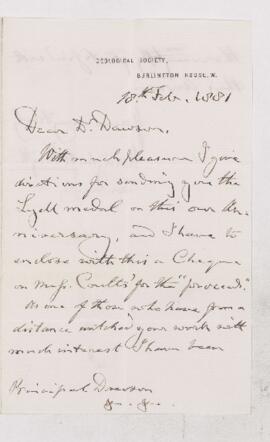 GEOLOGICAL SOCIETY,
BURLINGTON HOUSE, W.
18th Feb. 1881
Dear Dr. Dawson,
With much pleasure I give
directions for sending you the
Lyell medal on this our An-
niversary, and I have to
enclose with this a Cheque
on Messrs. Coutts' for the "proceeds".
As one of those who have from a
distance watched your work with
much interest I have been
Principal Dawson
&c. &c.